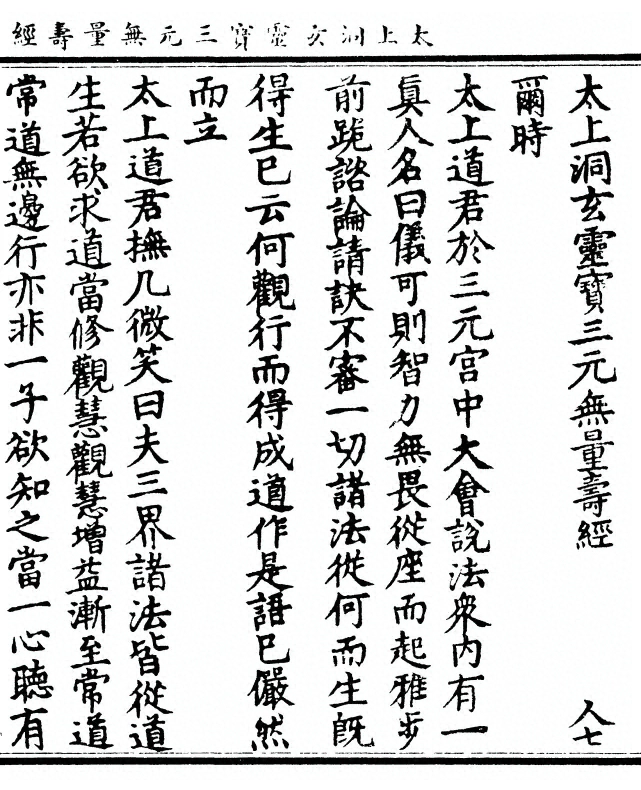 太上洞玄靈寶三元無量壽經
太上洞玄靈寶三元無量壽經 人七
爾時
太上道君於三元宮中大會說法衆内有一
真人名曰儀可則智力無畏從座而起雅步
前跪諮論請訣不審一切諸法從何而生既
得生已云何觀行而得成道作是語已儼然
而立
太上道君撫几微笑曰夫三界諸法皆從道
生若欲求道當修觀慧觀慧增益漸至常道
常道無邊行亦非一子欲知之當一心聽有